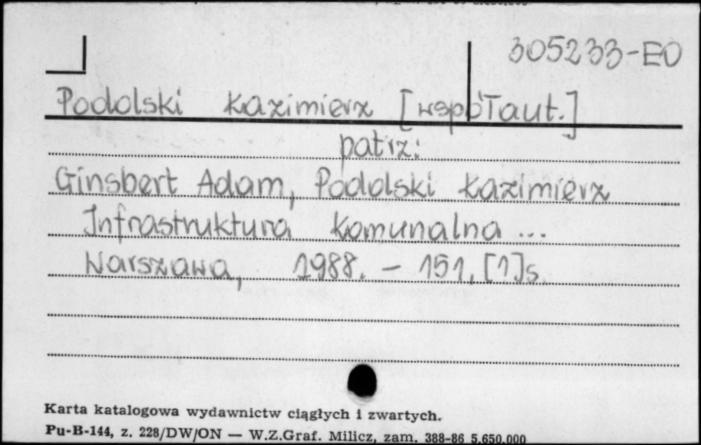 305233-EO
Podolski Kazimierz [współaut.]
patrz:
Ginsbert Adam, Podolski Kazimierz
Infrastruktura komunalna ...
Warszawa, 1988. - 151, [1]s.
Karta katalogowa wydawnictw ciągłych i zwartych.
Pu-B-144, z. 228/DW/ON — W.Z.Graf. Milicz, zam. 388-86 5.650.000